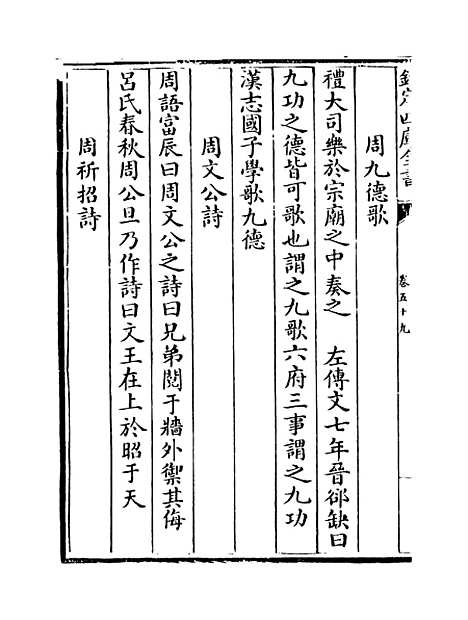 欽定四庫全書
卷五十九
周九德歌
禮大司樂於宗廟之中奏之　左傳文七年晉郤缺曰
九功之德皆可歌也謂之九歌六府三事謂之九功
漢志國子學歌九德
周文公詩
周語富辰曰周文公之詩曰兄弟鬩于牆外禦其侮
呂氏春秋周公旦乃作詩曰文王在上於昭于天
周祈招詩